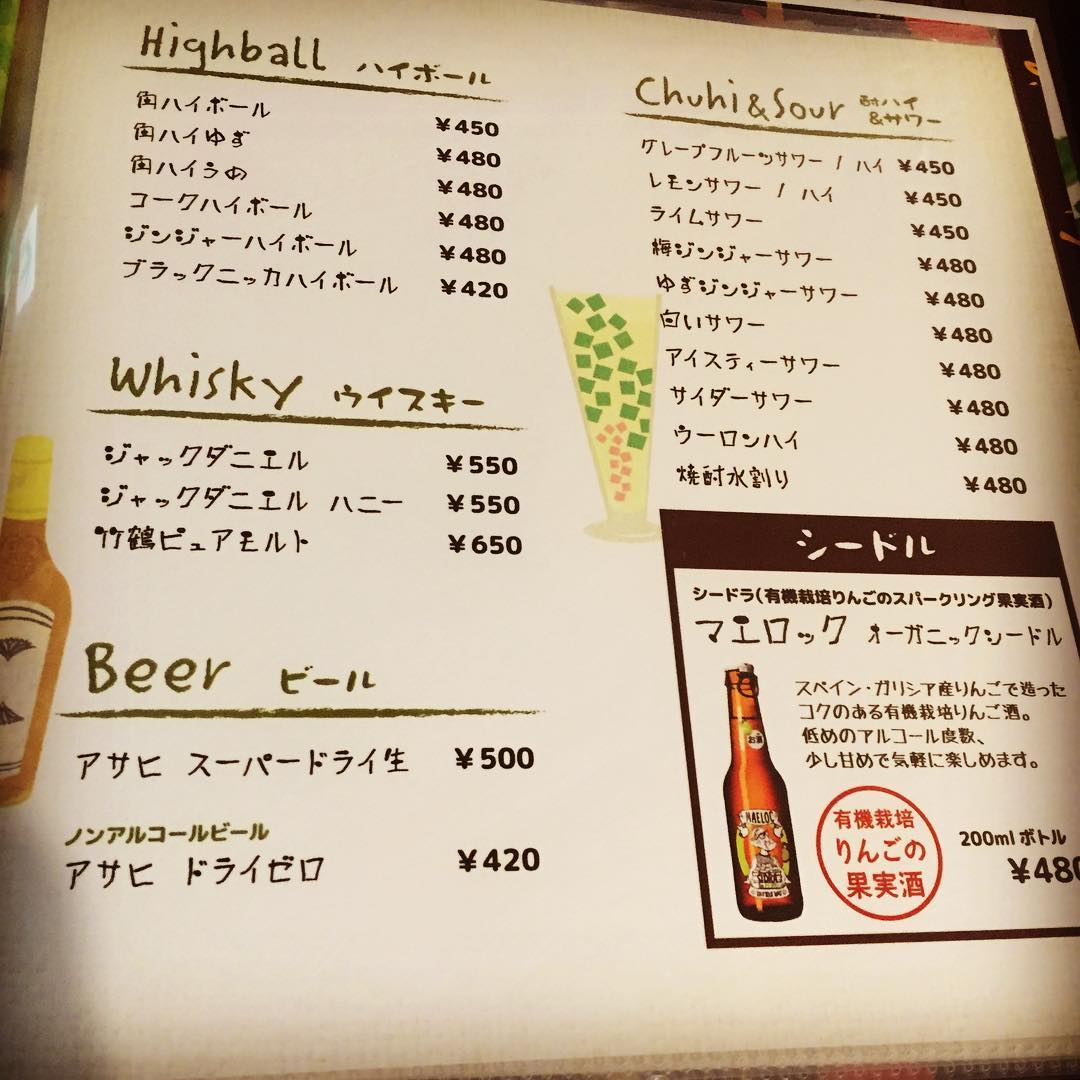 Highball ハイボール
角ハイボール ¥450
角ハイゆず ¥480
角ハイうめ ¥480
コークハイボール ¥480
ジンジャーハイボール ¥480
ブラックニッカハイボール ¥420
Whisky ウイスキー
ジャックダニエル ¥550
ジャックダニエル ハニー ¥550
竹鶴ピュアモルト ¥650
Beer ビール
アサヒ スーパードライ生 ¥500
ノンアルコールビール
アサヒ ドライゼロ ¥420
Chuhi&Sour 酎ハイ
&サワー
グレープフルーツサワー / ハイ ¥450
レモンサワー / ハイ ¥450
ライムサワー ¥450
梅ジンジャーサワー ¥480
ゆずジンジャーサワー ¥480
白いサワー ¥480
アイスティーサワー ¥480
サイダーサワー ¥480
ウーロンハイ ¥480
焼酎水割り ¥480
シードル
シードラ(有機栽培りんごのスパークリング果実酒)
マエロック オーガニックシードル
スペイン・ガリシア産りんごで造った
コクのある有機栽培りんご酒。
低めのアルコール度数、
少し甘めで気軽に楽しめます。
お酒
MAELOC
有機栽培
りんごの
果実酒
200ml ボトル
¥480